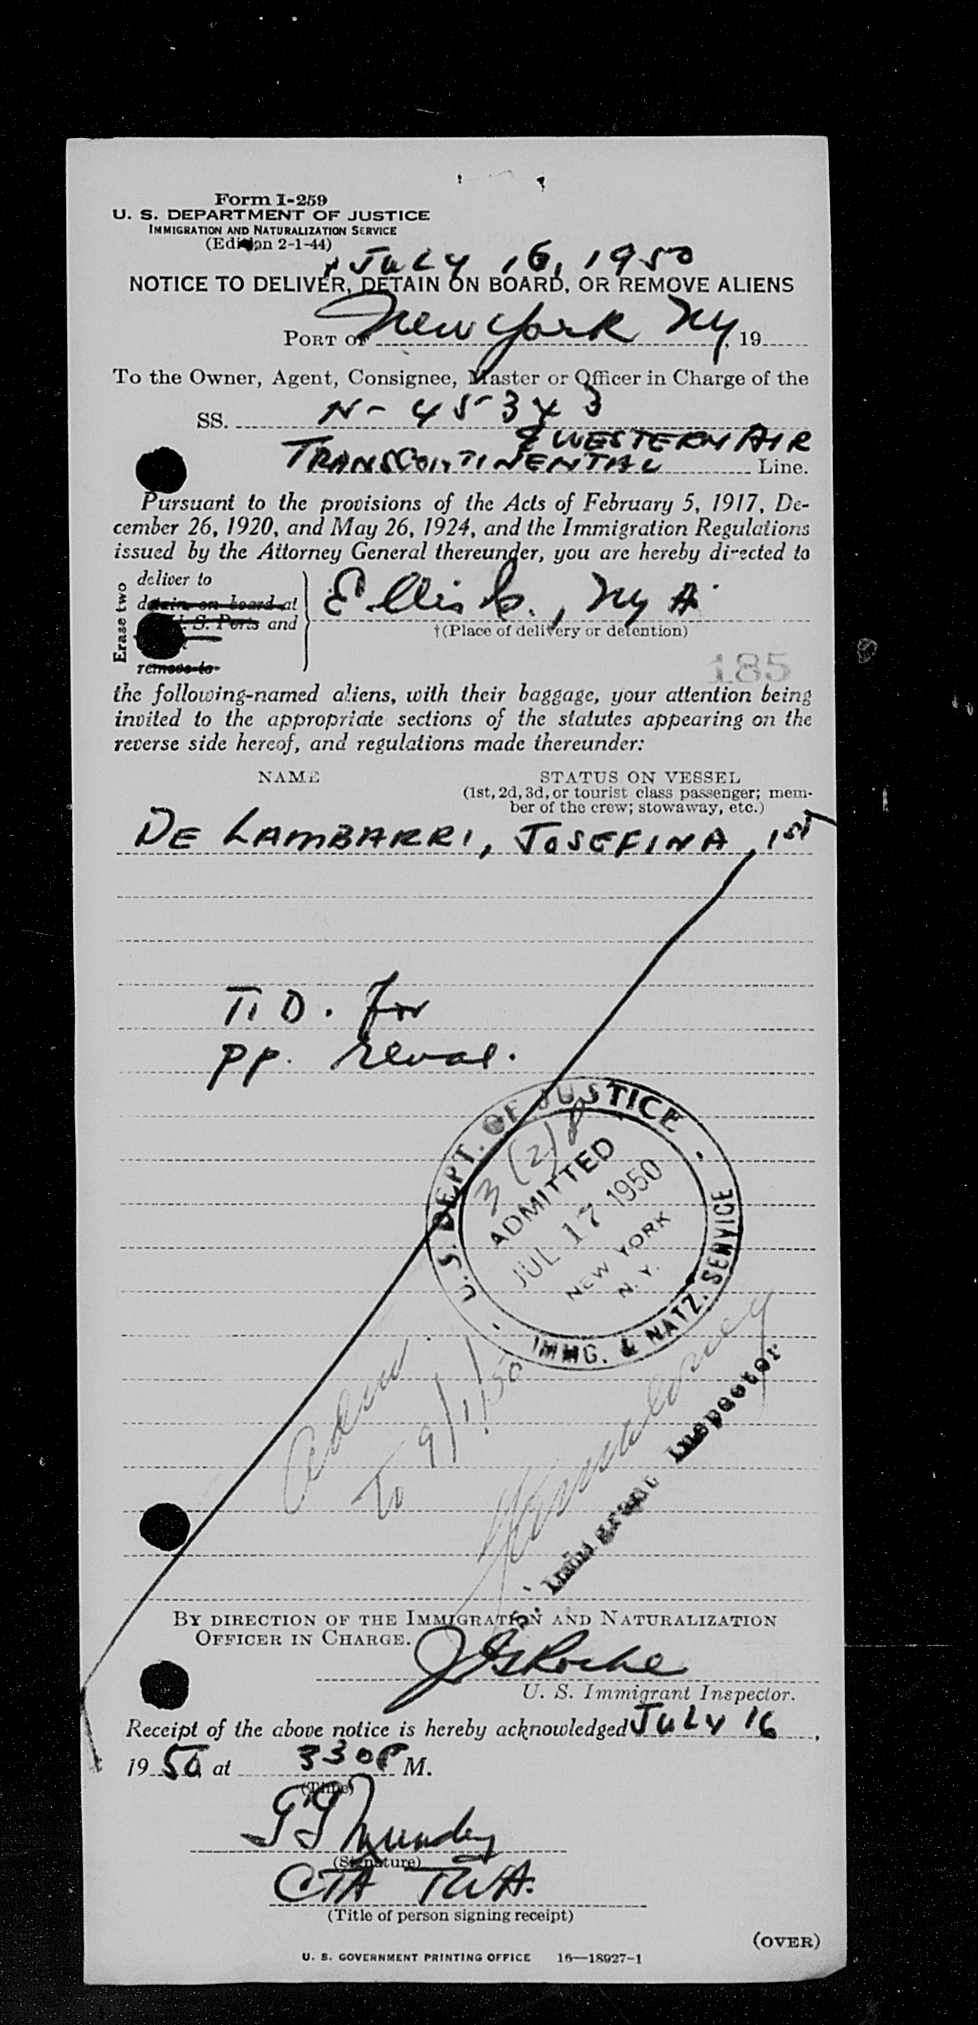 Form I-259
U. S. DEPARTMENT OF JUSTICE
IMMIGRATION AND NATURALIZATION SERVICE
(Edition 2-1-44)
JULY 16, 1950
NOTICE TO DELIVER, DETAIN ON BOARD, OR REMOVE ALIENS
PORT OF New York NY, 19
To the Owner, Agent, Consignee, Master or Officer in Charge of the
SS. N-45343
& WESTERN AIR
TRANSCONTINENTAL Line.
Pursuant to the provisions of the Acts of February 5, 1917, De-
cember 26, 1920, and May 26, 1924, and the Immigration Regulations
issued by the Attorney General thereunder, you are hereby directed to
Erase two
deliver to
detain on board at
U. S. Ports and
remove to
Ellis Is., NY
†(Place of delivery or detention)
185
the following-named aliens, with their baggage, your attention being
invited to the appropriate sections of the statutes appearing on the
reverse side hereof, and regulations made thereunder:
NAME STATUS ON VESSEL
(1st, 2d, 3d, or tourist class passenger; mem-
ber of the crew; stowaway, etc.)
DE LAMBARRI, JOSEFINA, 1ST
T.D. for
pp. reval.
U.S. DEPT. OF JUSTICE
3 (2)
ADMITTED
JUL 17 1950
NEW YORK
N. Y.
IMMG. & NATZ. SERVICE
Adm
To 9/1/50
Immigrant Inspector
BY DIRECTION OF THE IMMIGRATION AND NATURALIZATION
OFFICER IN CHARGE.
U. S. Immigrant Inspector.
Receipt of the above notice is hereby acknowledged JULY 16,
1950 at 330P M.
(Time)
(Signature)
CTA TWA.
(Title of person signing receipt)
(OVER)
U. S. GOVERNMENT PRINTING OFFICE 16—18927-1